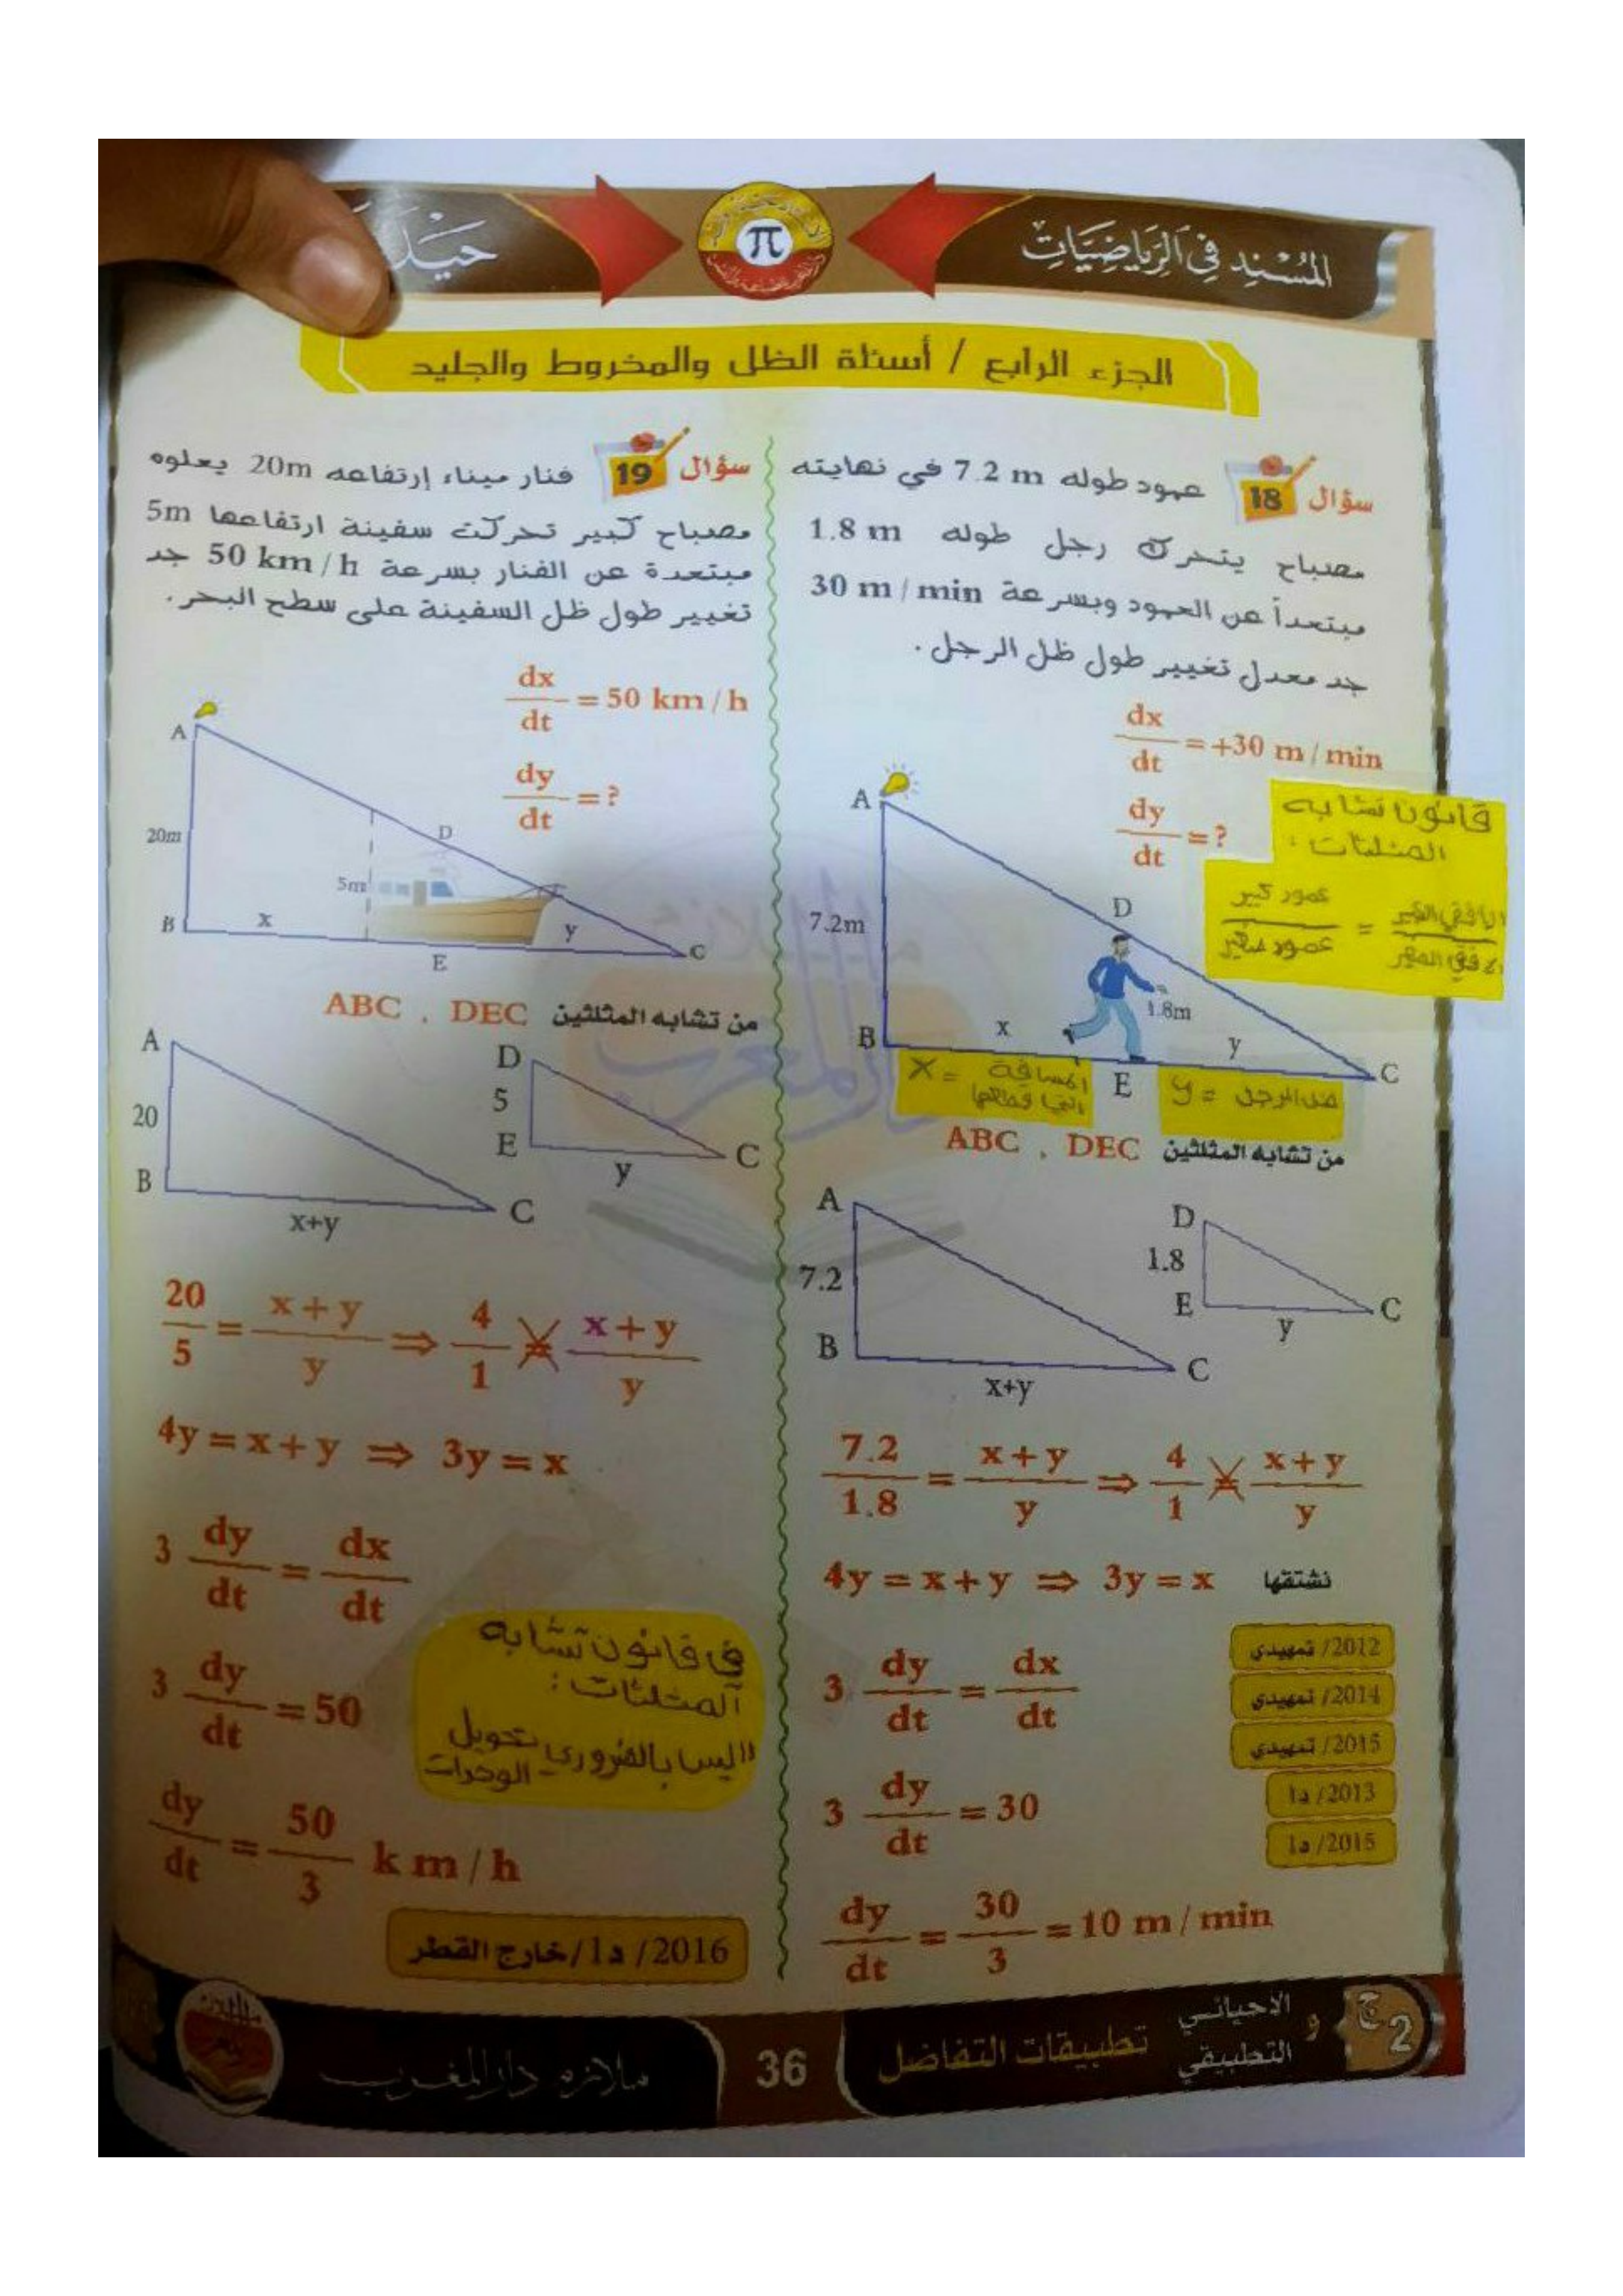 المُسْنِد فِي الرِّيَاضِيَّاتِ
π
حَيْدَ
الجزء الرابع / أسئلة الظل والمخروط والجليد
سؤال 18 عمود طوله 7.2 m في نهايته
مصباح يتحرك رجل طوله 1.8 m
مبتعداً عن العمود وبسرعة 30 m / min
جد معدل تغيير طول ظل الرجل .
dx/dt = +30 m / min
dy/dt = ?
قانون تشابه
المثلثات :
عمود كبير / عمود صغير = الافقي الكبير / الافقي الصغير
A
D
7.2m
1.8m
B x E y C
x = المسافة
التي قطعها
y = ظل الرجل
من تشابه المثلثين ABC , DEC
A
7.2
B
x+y
C
D
1.8
E
y
C
7.2/1.8 = x+y/y ⇒ 4/1 = x+y/y
4y = x+y ⇒ 3y = x نشتقها
3 dy/dt = dx/dt
3 dy/dt = 30
dy/dt = 30/3 = 10 m / min
2012/ تمهيدي
2014/ تمهيدي
2015/ تمهيدي
2013/ د1
2015/ د1
سؤال 19 فنار ميناء إرتفاعه 20m يعلوه
مصباح كبير تحركت سفينة ارتفاعها 5m
مبتعدة عن الفنار بسرعة 50 km / h جد
تغيير طول ظل السفينة على سطح البحر .
dx/dt = 50 km / h
dy/dt = ?
A
20m
D
5m
B x E y C
من تشابه المثلثين ABC , DEC
A
20
B
x+y
C
D
5
E
y
C
20/5 = x+y/y ⇒ 4/1 = x+y/y
4y = x+y ⇒ 3y = x
3 dy/dt = dx/dt
3 dy/dt = 50
dy/dt = 50/3 k m / h
في قانون تشابه
المثلثات :
ليس بالضروري تحويل
الوحدات
2016/ د1/ خارج القطر
2 ج و الاحيائي التطبيقي
تطبيقات التفاضل
36
ملازم دار المغرب